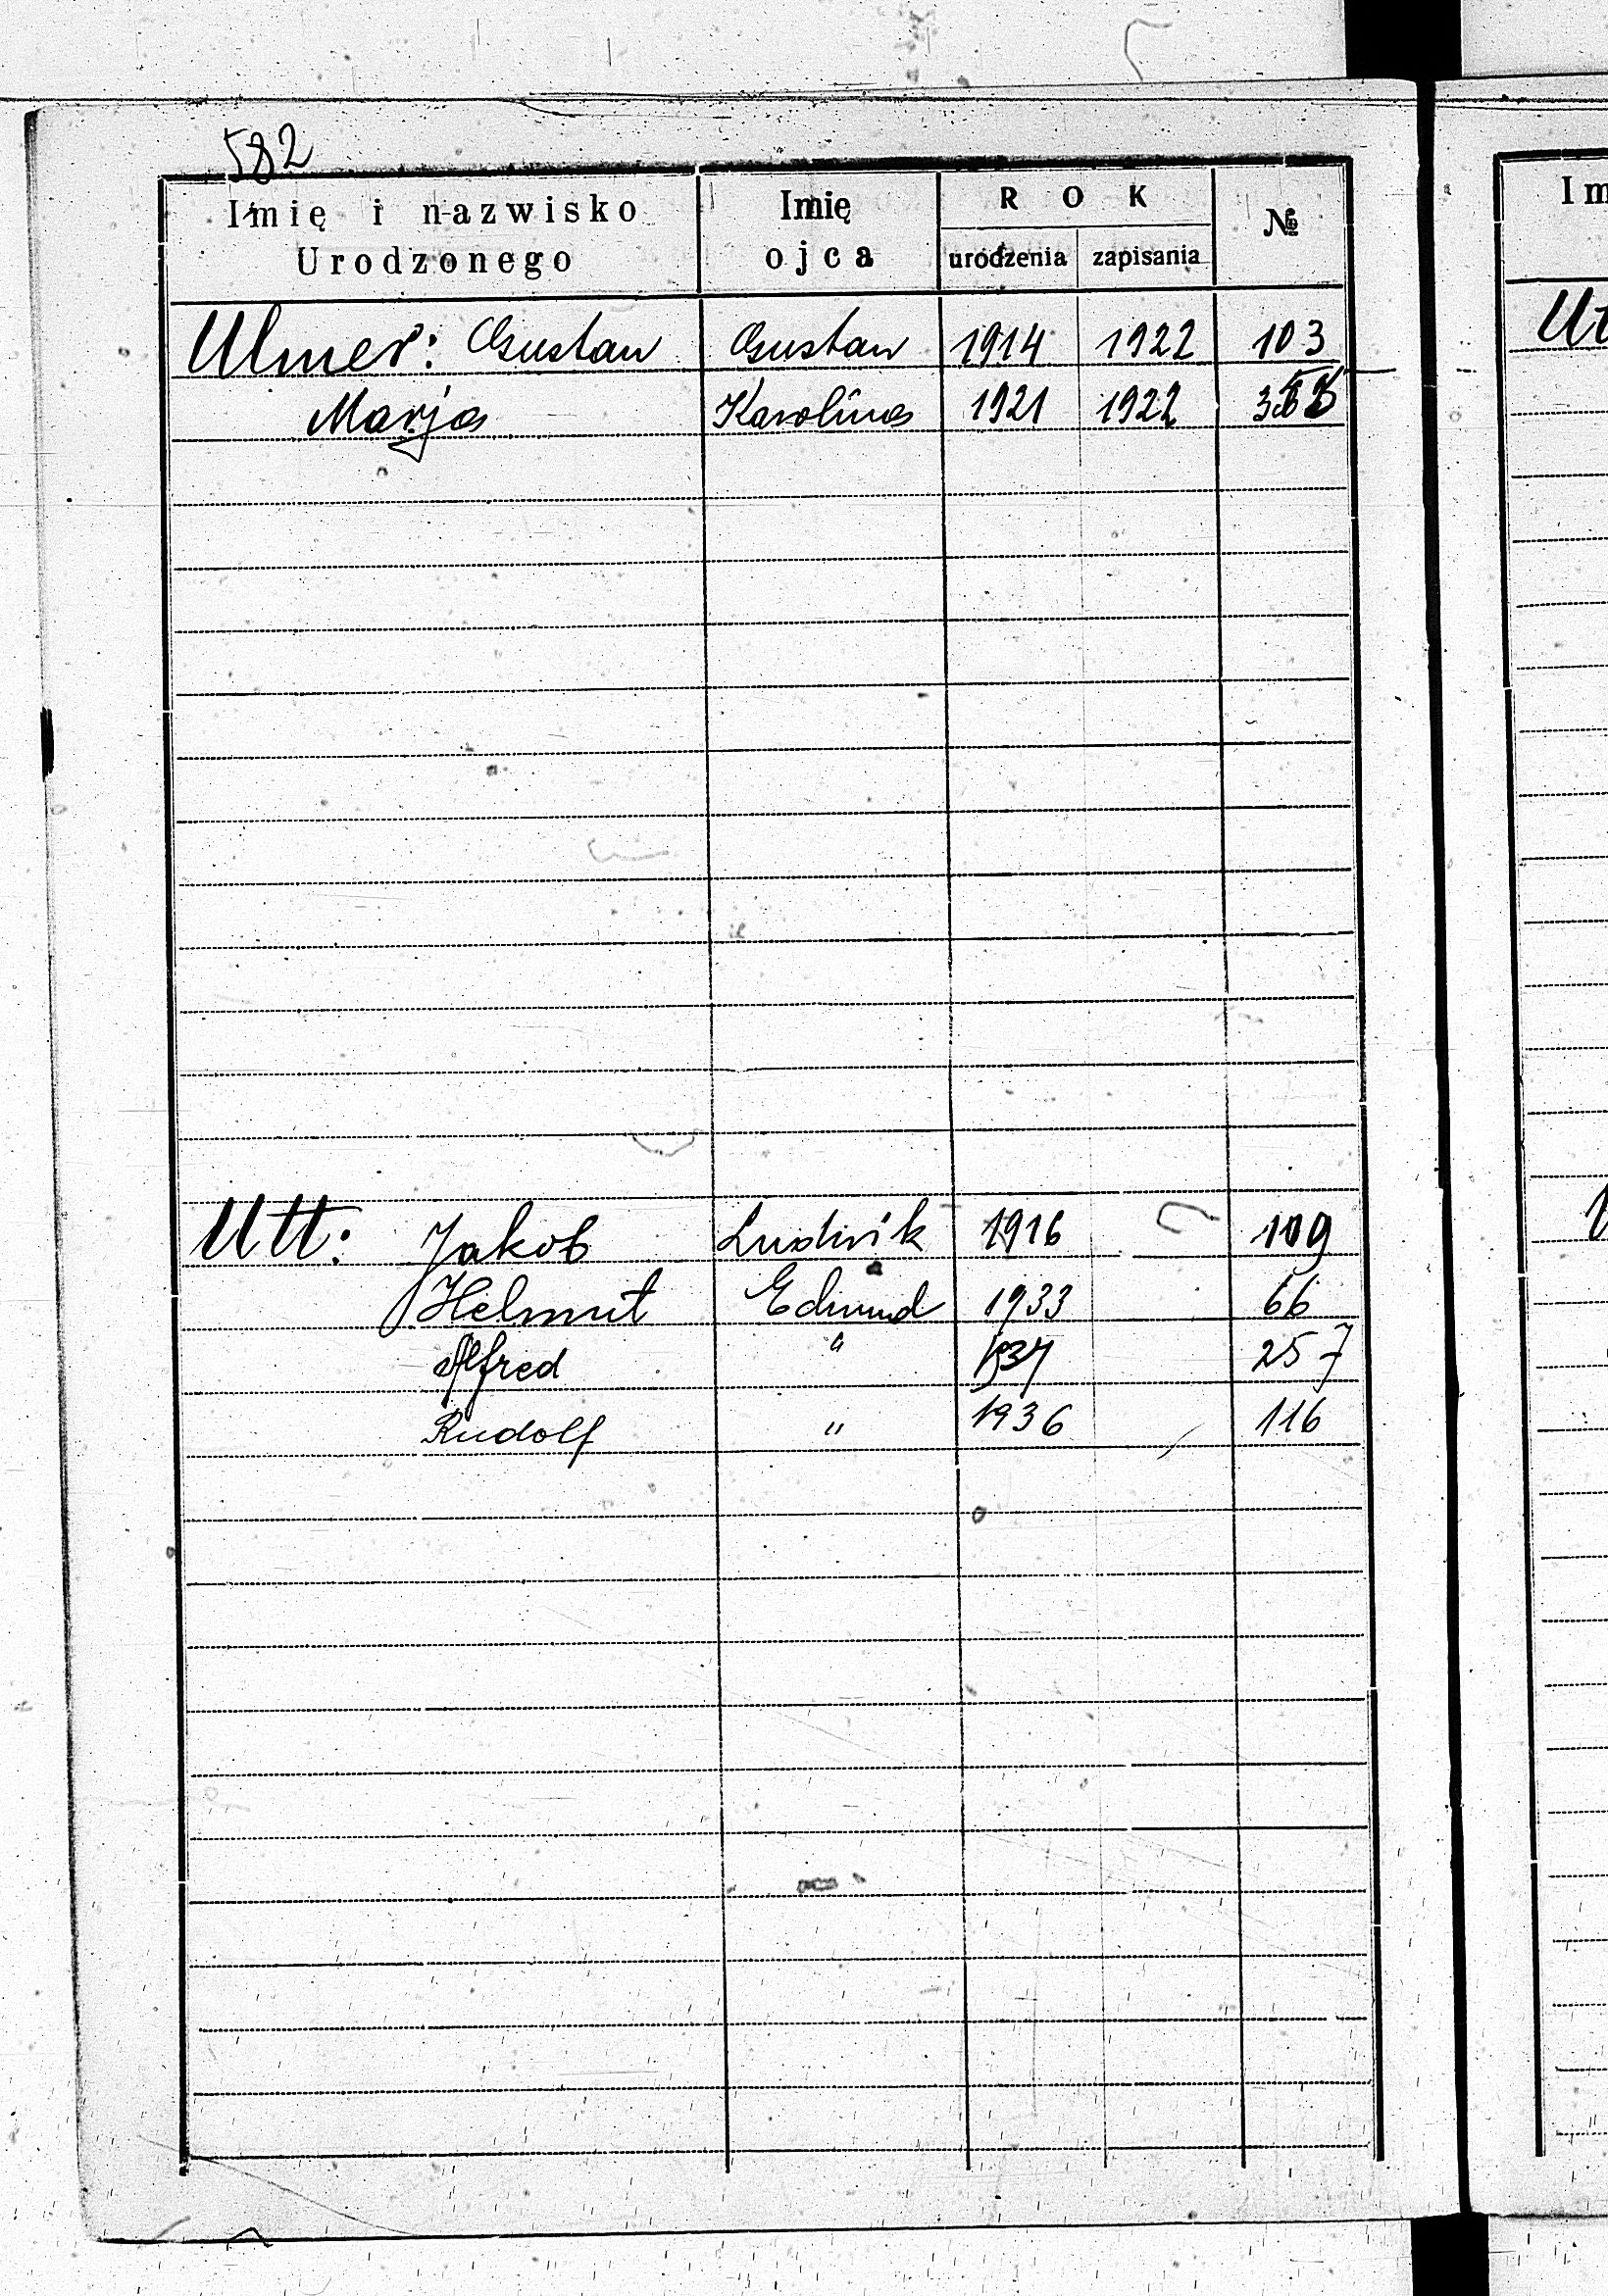 582
Imię i nazwisko Urodzonego
Imię ojca
ROK
urodzenia zapisania
№
Ulmer: Gustaw Gustaw 1914 1922 103
Marja Karolina 1921 1922
Utt: Jakob Ludwik 1916 109
Helmut Edmund 1933 66
Alfred " 257
Rudolf " 1936 116
Im
Ut